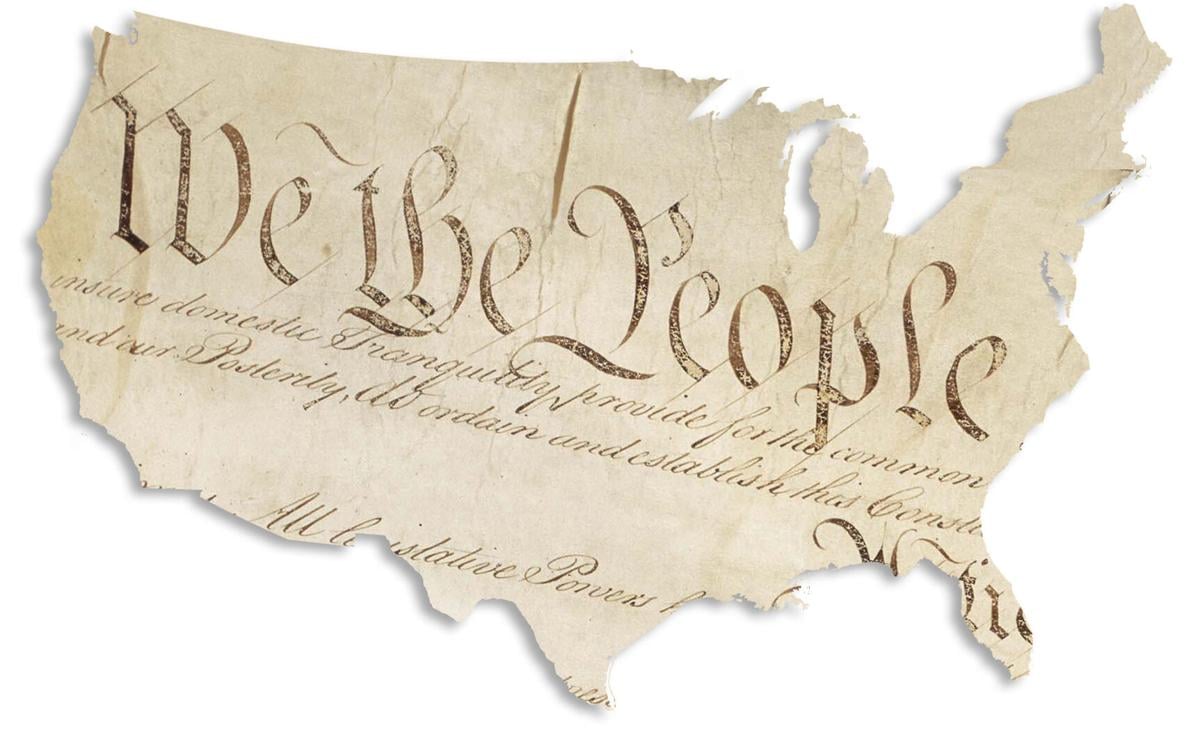 We the People
insure domestic Tranquility, provide for the common
and our Posterity, do ordain and establish this Constit
All legislative Powers h
Artic